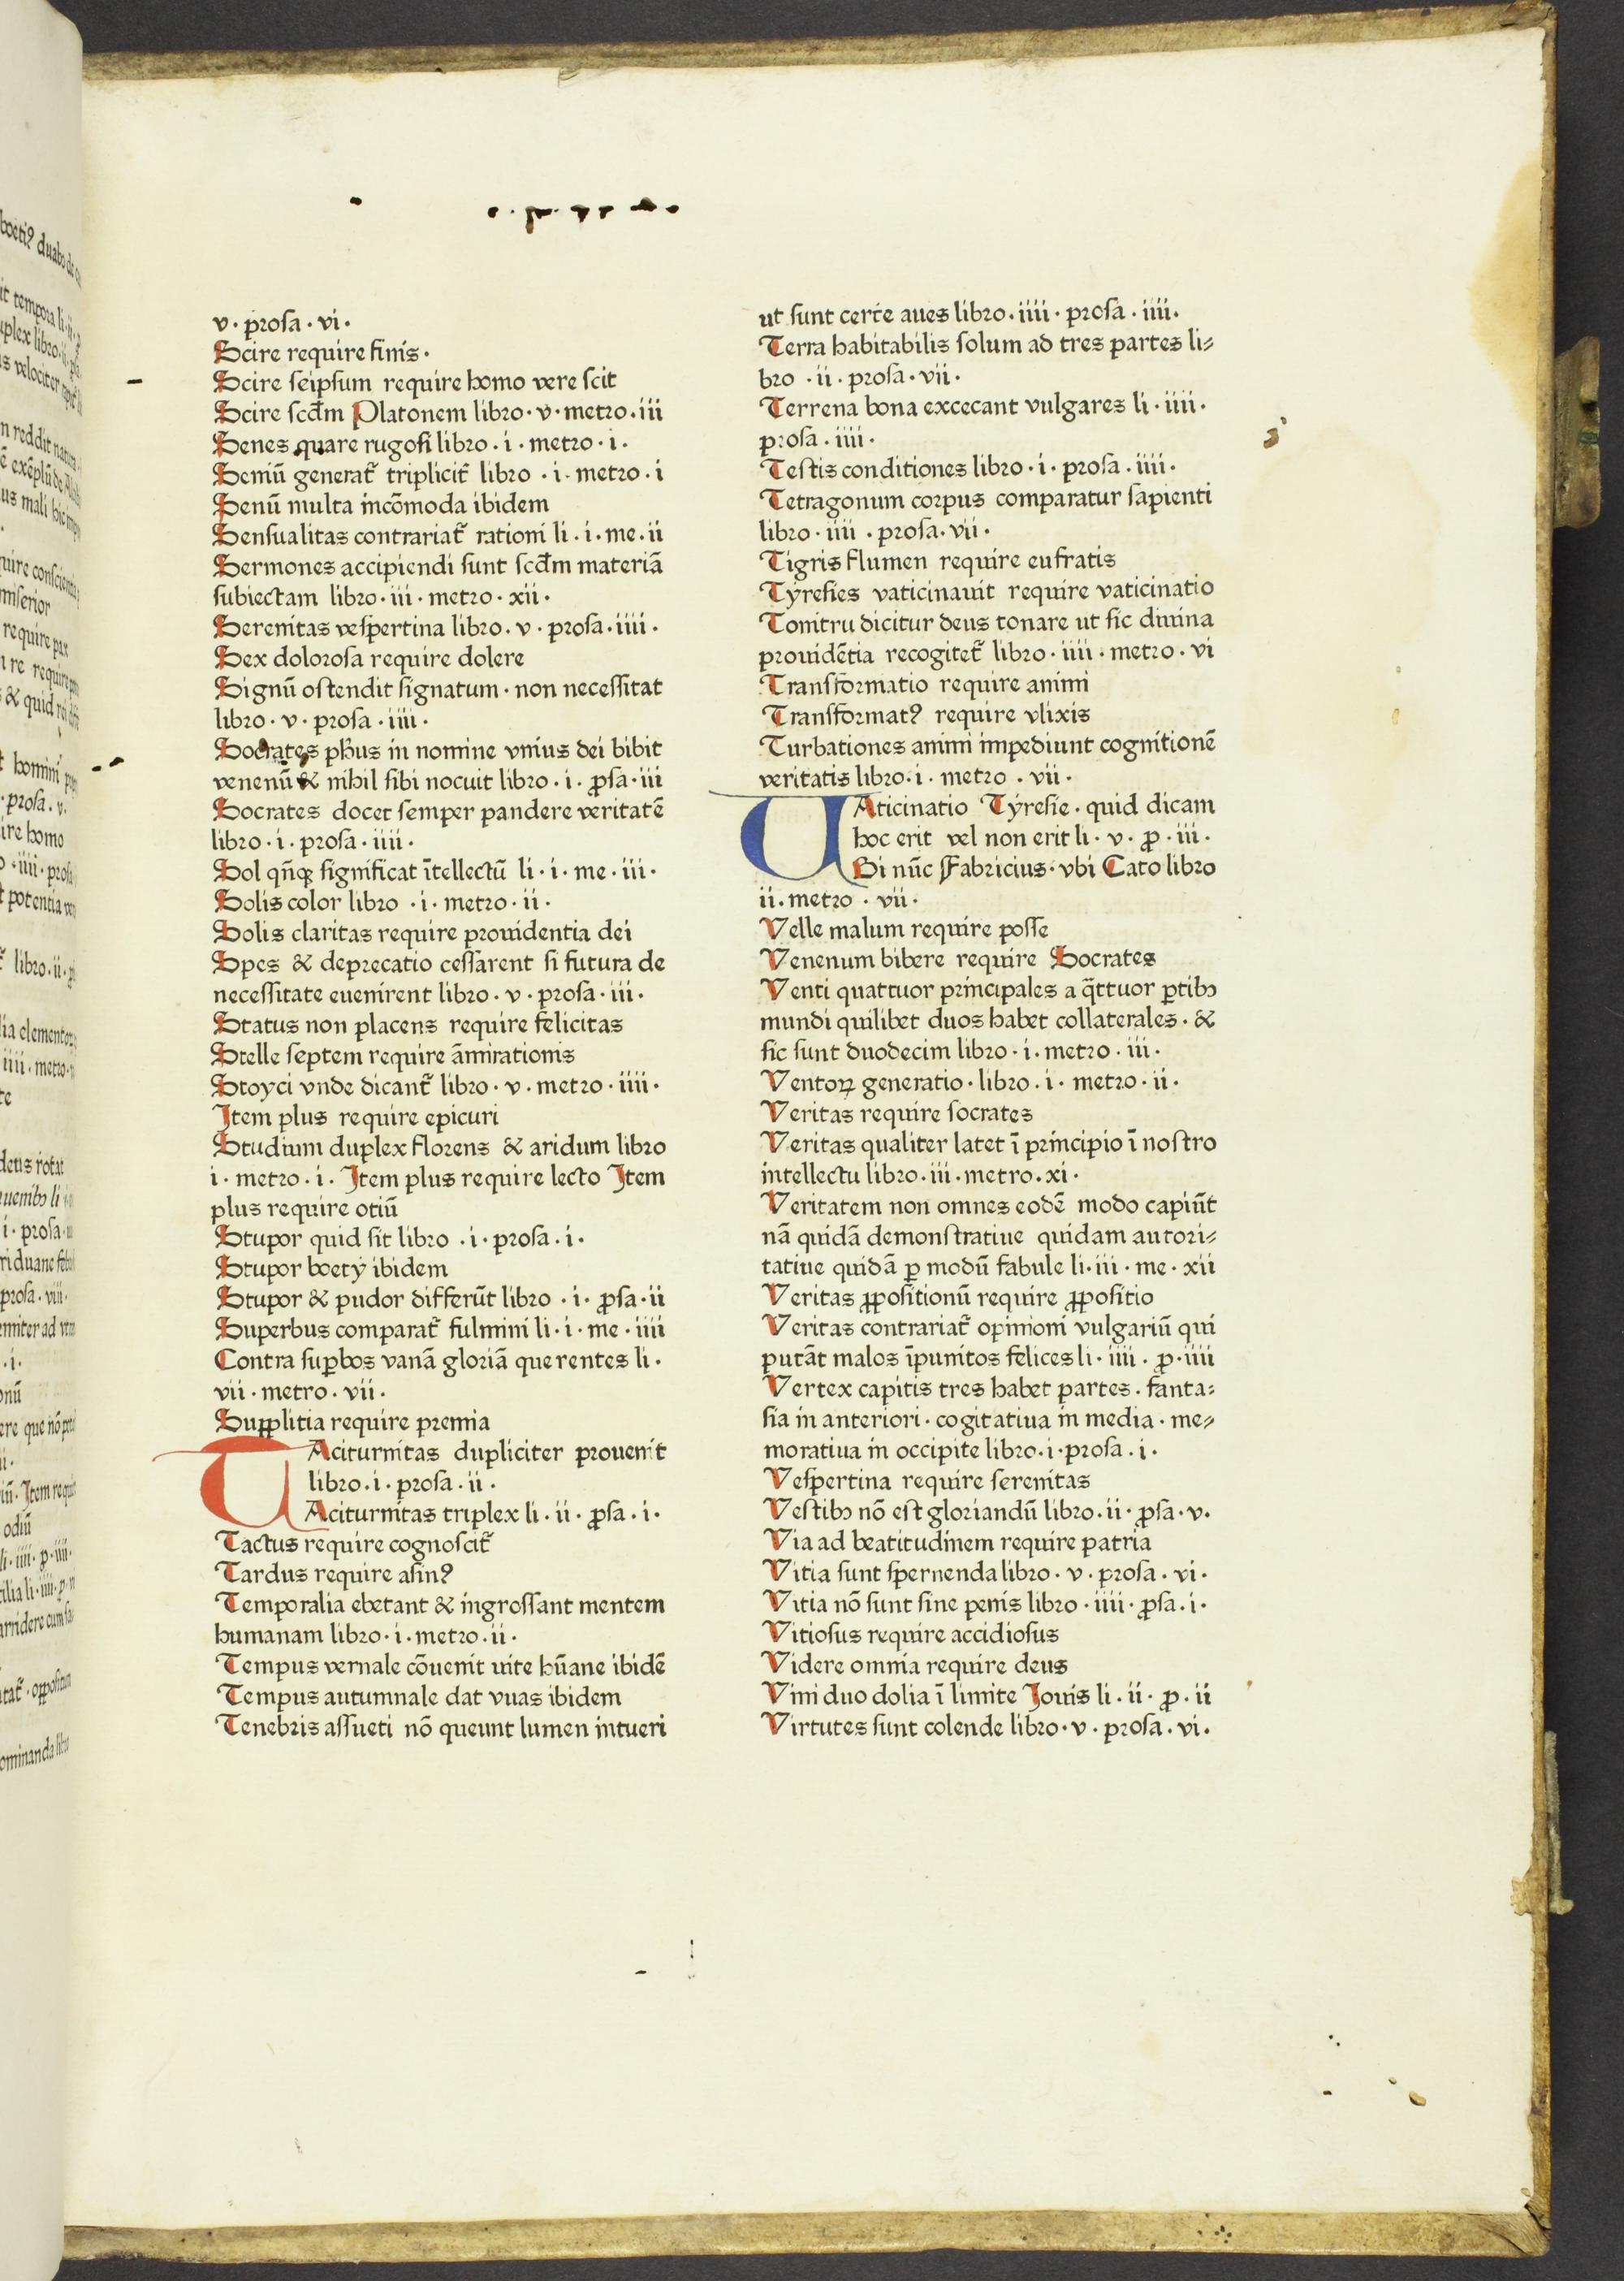 v. prosa. vi.
Scire require finis.
Scire seipsum require homo vere scit
Scire scd̄m Platonem libro. v. metro. iii
Senes quare rugosi libro. i. metro. i.
Semiū generat᷑ triplicit᷑ libro. i. metro. i
Senū multa incōmoda ibidem
Sensualitas contrariat᷑ rationi li. i. me. ii
Sermones accipiendi sunt scd̄m materiā
subiectam libro. iii. metro. xii.
Serenitas vespertina libro. v. prosa. iiii.
Sex dolorosa require dolere
Signū ostendit signatum. non necessitat
libro. v. prosa. iiii.
Socrates ph̄us in nomine vnius dei bibit
venenū & nihil sibi nocuit libro. i. ꝓsa. iii
Socrates docet semper pandere veritatē
libro. i. prosa. iiii.
Sol qn̄qꝫ significat ītellectū li. i. me. iii.
Solis color libro. i. metro. ii.
Solis claritas require prouidentia dei
Spes & deprecatio cessarent si futura de
necessitate euenirent libro. v. prosa. iii.
Status non placens require felicitas
Stelle septem require āmirationis
Stoyci vnde dicant᷑ libro. v. metro. iiii.
Item plus require epicuri
Studium duplex florens & aridum libro
i. metro. i. Item plus require lecto Item
plus require otiū
Stupor quid sit libro. i. prosa. i.
Stupor boetÿ ibidem
Stupor & pudor differūt libro. i. ꝓsa. ii
Superbus comparat᷑ fulmini li. i. me. iiii
Contra suꝑbos vanā gloriā querentes li.
vii. metro. vii.
Supplitia require premia
TAciturnitas dupliciter prouenit
libro. i. prosa. ii.
Aciturnitas triplex li. ii. ꝓsa. i.
Tactus require cognoscit᷑
Tardus require asinꝰ
Temporalia ebetant & ingrossant mentem
humanam libro. i. metro. ii.
Tempus vernale cōuenit uite hūane ibidē
Tempus autumnale dat vuas ibidem
Tenebris assueti nō queunt lumen intueri
ut sunt certe aues libro. iiii. prosa. iiii.
Terra habitabilis solum ad tres partes li-
bro. ii. prosa. vii.
Terrena bona excecant vulgares li. iiii.
prosa. iiii.
Testis conditiones libro. i. prosa. iiii.
Tetragonum corpus comparatur sapienti
libro. iiii. prosa. vii.
Tigris flumen require eufratis
Tÿresies vaticinauit require vaticinatio
Tonitru dicitur deus tonare ut sic diuina
prouidētia recogitet᷑ libro. iiii. metro. vi
Transformatio require animi
Transformatꝰ require vlixis
Turbationes animi impediunt cognitionē
veritatis libro. i. metro. vii.
VAticinatio Tÿresie. quid dicam
hoc erit vel non erit li. v. ꝓ. iii.
Bi nūc Fabricius. vbi Cato libro
ii. metro. vii.
Velle malum require posse
Venenum bibere require Socrates
Venti quattuor principales a q̄ttuor ꝑtibꝫ
mundi quilibet duos habet collaterales. &
sic sunt duodecim libro. i. metro. iii.
Ventoꝝ generatio. libro. i. metro. ii.
Veritas require socrates
Veritas qualiter latet ī principio ī nostro
intellectu libro. iii. metro. xi.
Veritatem non omnes eodē modo capiūt
nā quidā demonstratiue quidam autori-
tatiue quidā ꝑ modū fabule li. iii. me. xii
Veritas ꝓpositionū require ꝓpositio
Veritas contrariat᷑ opinioni vulgariū qui
putāt malos īpunitos felices li. iiii. ꝓ. iiii
Vertex capitis tres habet partes. fanta-
sia in anteriori. cogitatiua in media. me-
moratiua in occipite libro. i. prosa. i.
Vespertina require serenitas
Vestibꝫ nō est gloriandū libro. ii. ꝓsa. v.
Via ad beatitudinem require patria
Vitia sunt spernenda libro. v. prosa. vi.
Vitia nō sunt sine penis libro. iiii. ꝓsa. i.
Vitiosus require accidiosus
Videre omnia require deus
Vini duo dolia ī limite Iouis li. ii. ꝓ. ii
Virtutes sunt colende libro. v. prosa. vi.